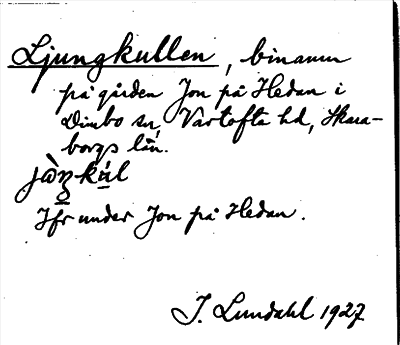 Ljungkullen, binamn
på gården Jon på Hedan i
Dimbo sn, Vartofta hd, Skara-
borgs län.
jòŋkúl
Jfr under Jon på Hedan.
I. Lundahl 1927